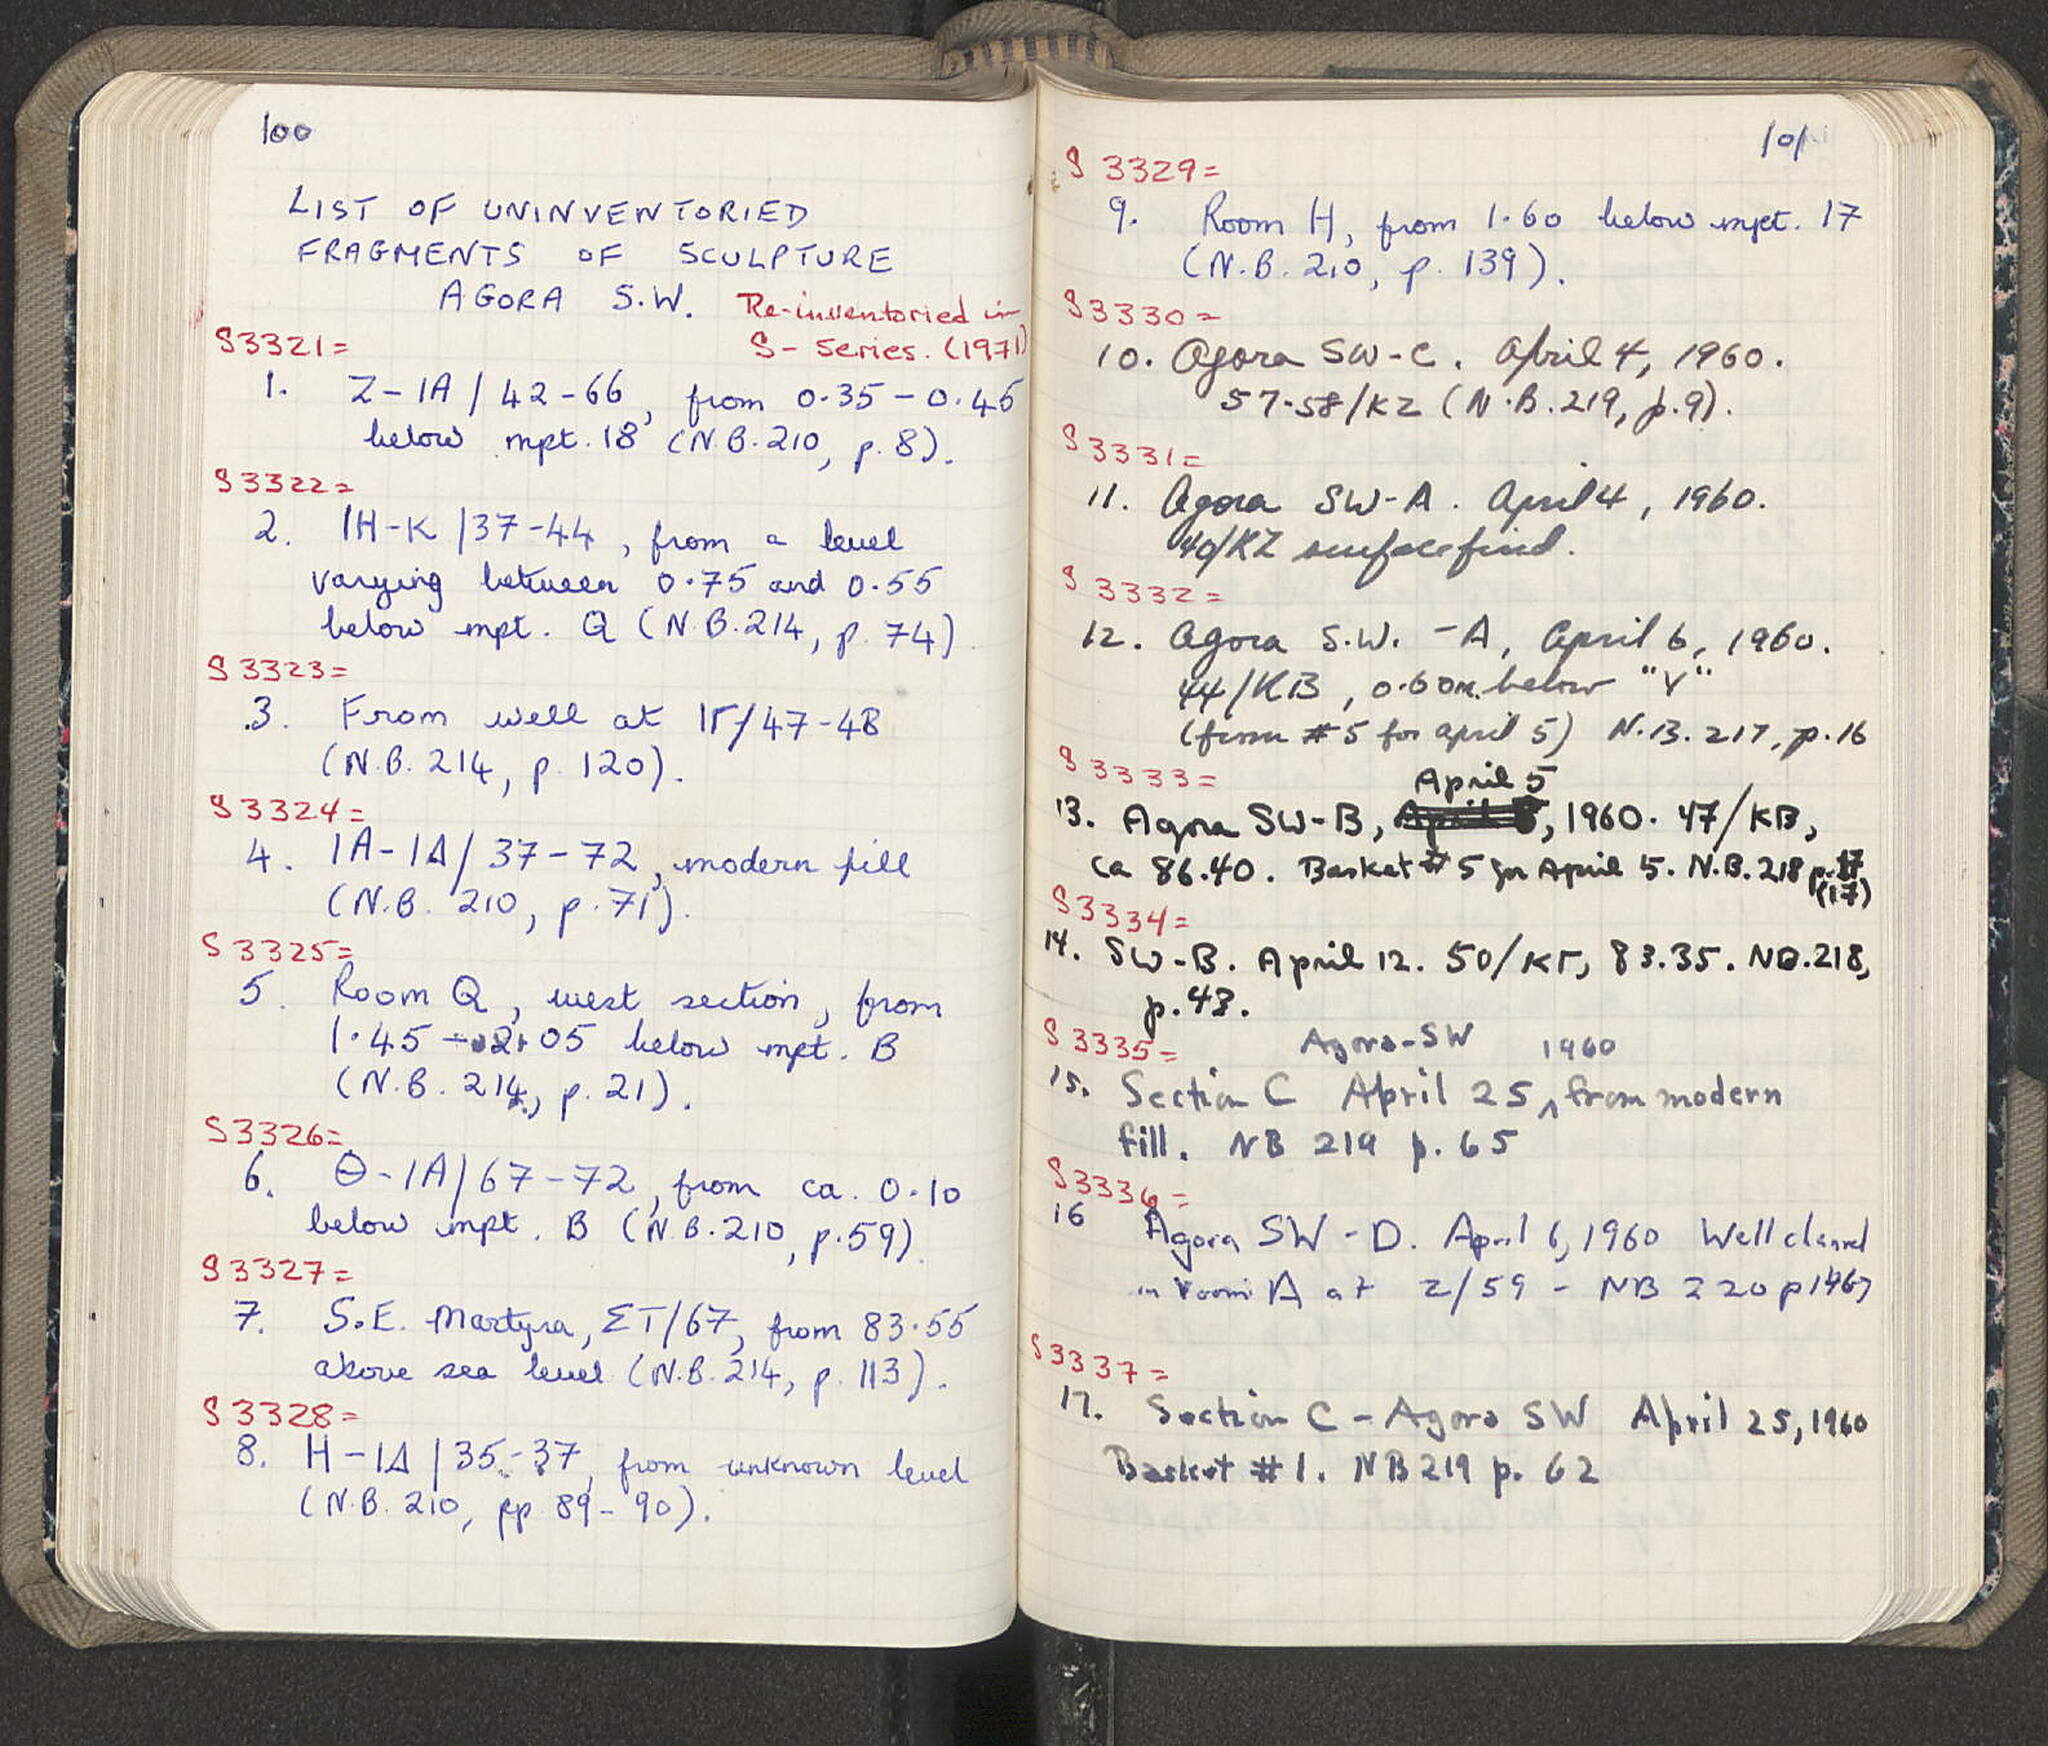 100
LIST OF UNINVENTORIED
FRAGMENTS OF SCULPTURE
AGORA S.W. Re-inventoried in
S3321= S-Series. (1971)
1. Z-IA/42-66, from 0.35-0.45
below mpt. 18 (N.B. 210, p. 8).
S3322=
2. IH-K/37-44, from a level
varying between 0.75 and 0.55
below mpt. Q (N.B. 214, p. 74)
S3323=
3. From well at IΓ/47-48
(N.B. 214, p. 120).
S3324=
4. IA-IΔ/37-72, modern fill
(N.B. 210, p. 71).
S3325=
5. Room Q, west section, from
1.45-2.05 below mpt. B
(N.B. 214, p. 21).
S3326=
6. Θ-IA/67-72, from ca. 0.10
below mpt. B (N.B. 210, p. 59).
S3327=
7. S.E. Martyra, ΣT/67, from 83.55
above sea level (N.B. 214, p. 113).
S3328=
8. H-IΔ/35-37, from unknown level
(N.B. 210, pp 89-90).
101
S3329=
9. Room H, from 1.60 below mpt. 17
(N.B. 210, p. 139).
S3330=
10. Agora SW-C. April 4, 1960.
57-58/KZ (N.B. 219, p. 9).
S3331=
11. Agora SW-A. April 4, 1960.
40/KZ surface find.
S3332=
12. Agora S.W. -A, April 6, 1960.
44/KB, 0.60m. below "V"
(from #5 for April 5) N.B. 217, p. 16
S3333= April 5
13. Agora SW-B, 1960. 47/KB,
ca 86.40. Basket #5 for April 5. N.B. 218 p. 17
(17)
S3334=
14. SW-B. April 12. 50/KΓ, 83.35. NB. 218,
p. 43.
S3335= Agora-SW 1960
15. Section C April 25, ^ from modern
fill. NB 219 p. 65
S3336=
16 Agora SW-D. April 6, 1960 Well
in room A at Z/59 - NB 220
S3337=
17. Section C - Agora SW April 25, 1960
Basket #1. NB 219 p. 62